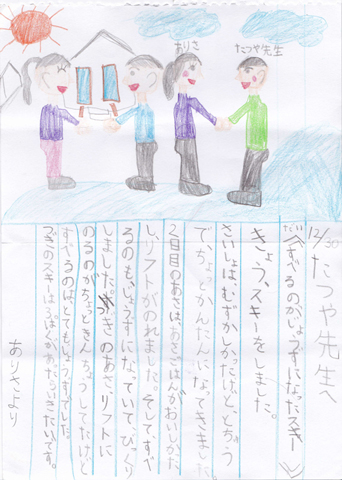 ありさ
たつや先生
12/30
たつや先生へ
だい〈すべるのがじょうずになったスキー〉
きょう、スキーをしました。
さいしょは、むずかしかったけど、とちゅう
で、ちょっとかんたんになってきました。
2日目のあさは、あさごはんがおいしかった
し、リフトがのれました。そして、すべ
るのも、じょうずになっていて、びっくり
しました。つぎのあさリフトに
のるのがちょっときんちょうしてたけど
すべるのは、とてもじょうずでした。
つぎのスキーは
があったらいきたいです。
ありさより